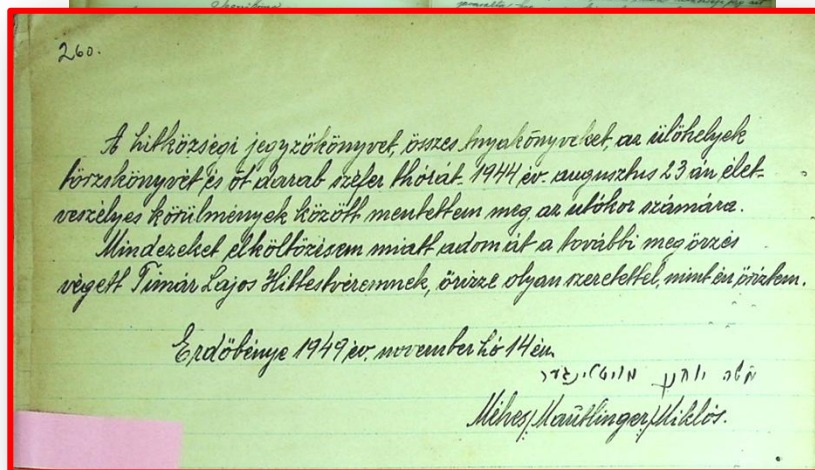 260.
A hitközségi jegyzőkönyvet, összes anyakönyveket, az ülőhelyek
törzskönyvét és öt darab széfer thórát 1944 év. augusztus 23 án élet-
veszélyes körülmények között mentettem meg az utókor számára.
Mindezeket elköltözésem miatt adom át a további megőrzés
végett Timár Lajos Hittestvéremnek, őrizze olyan szeretettel, mint én őriztem.
Erdőbénye 1949 év. november hó 14 én
משה יוחנן מויטלינגער
Méhes /Mautlinger/ Miklós.